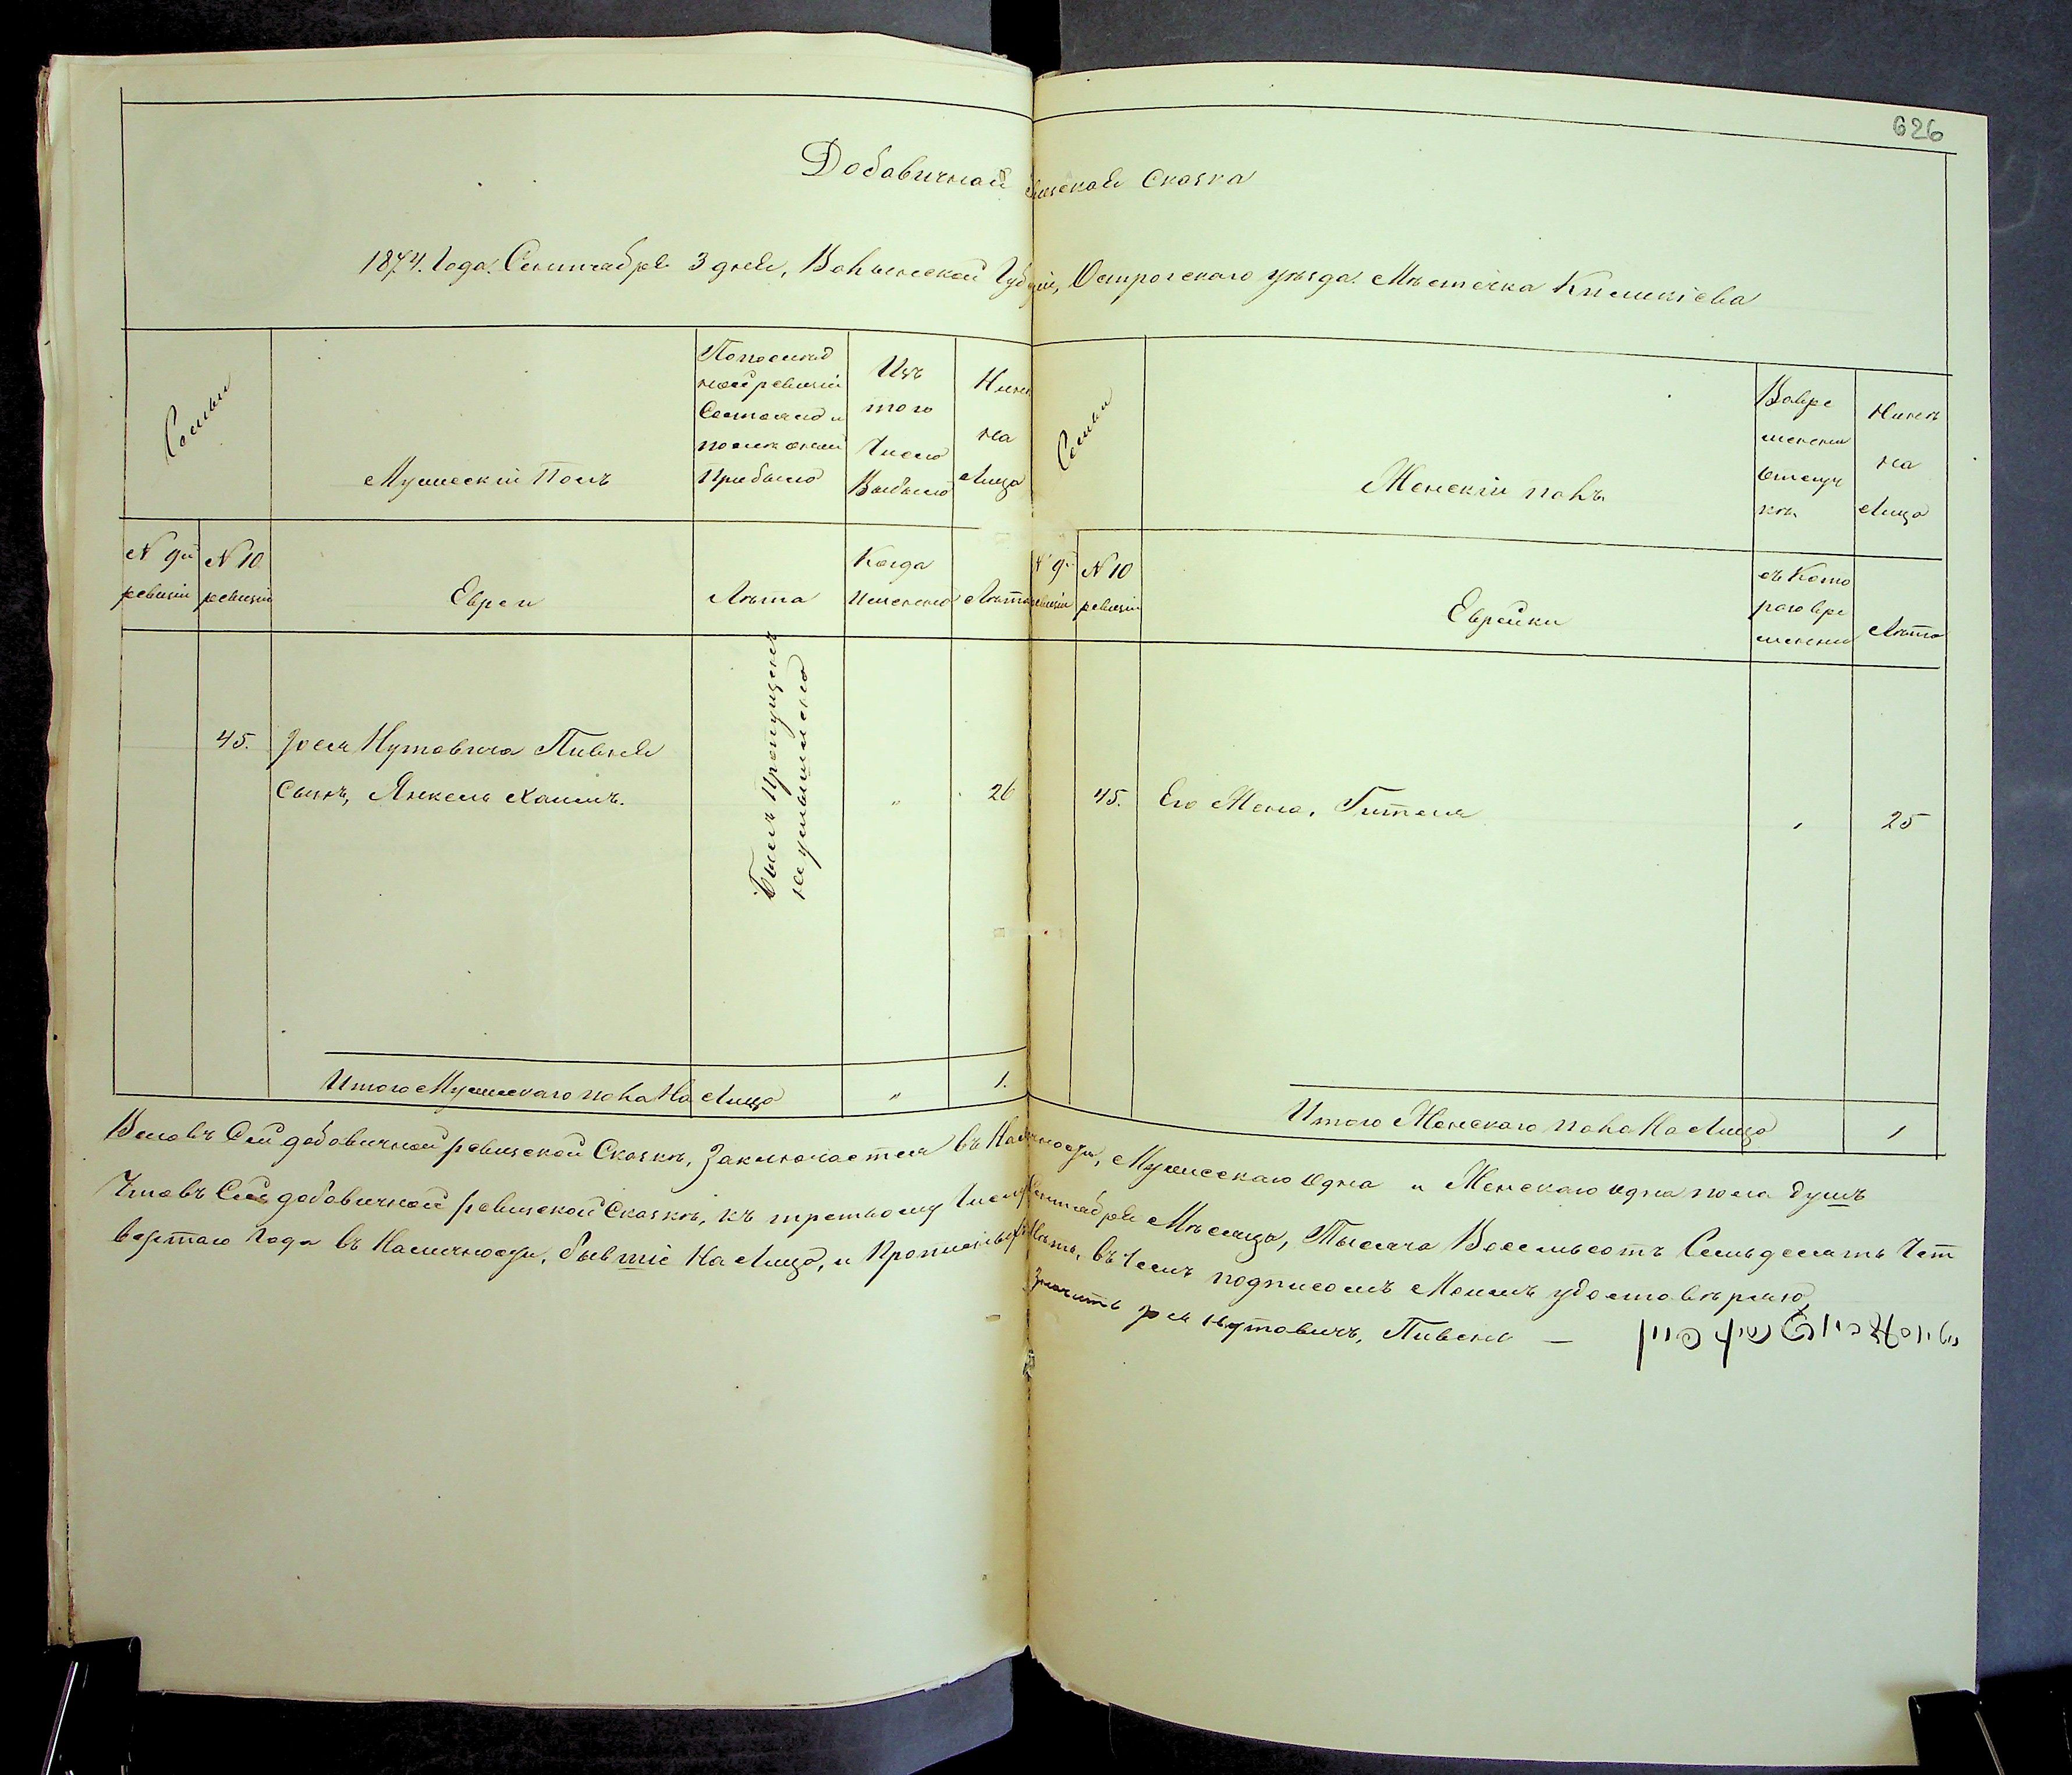 626
Добавичной ревизской Сказка
1874. Года. Сентября 3 дня, Волынской Губерніи, Острогскаго уѣзда. Мѣстечка Киликіева
Семьи
Мужескій Полъ
Последней ревизіи Состояло и после оной Прибыло
Изъ того Числа Выбыло
Ныне на Лицо
Семьи
Женскій полъ
Вовременной отлучкѣ
Нынѣ на Лицо
№ 9й ревизіи
№ 10 ревизіи
Евреи
Лѣта
Когда Именно
Лѣта
№ 9й ревизіи
№ 10 ревизіи
Еврейки
съ Котораго времени
Лѣта
45. Іося Нутовича Пивня
Сынъ, Янкель Хаимъ.
Былъ Пропущенъ
неумышленно
"
26
45. Его Жена, Гителя
,
25
Итого Мужескаго пола На Лицо
"
1.
Итого Женскаго пола На Лицо
1
Вслѣдъ Сей добавичной ревизской Сказкѣ, Заключается въ Наличности, Мужескаго Одна и Женскаго одна пола душъ
Что въ Сей добавичной ревизской Сказкѣ, къ третьому Числу Сентября Мѣсяца, Тысяча Восемьсотъ Семьдесятъ Чет
вертаго Года въ Наличности, бывшіе На Лицо, въ Чемъ подписомъ Моимъ удостовѣряю,
Значитъ Іось Нутовичъ, Пивень —